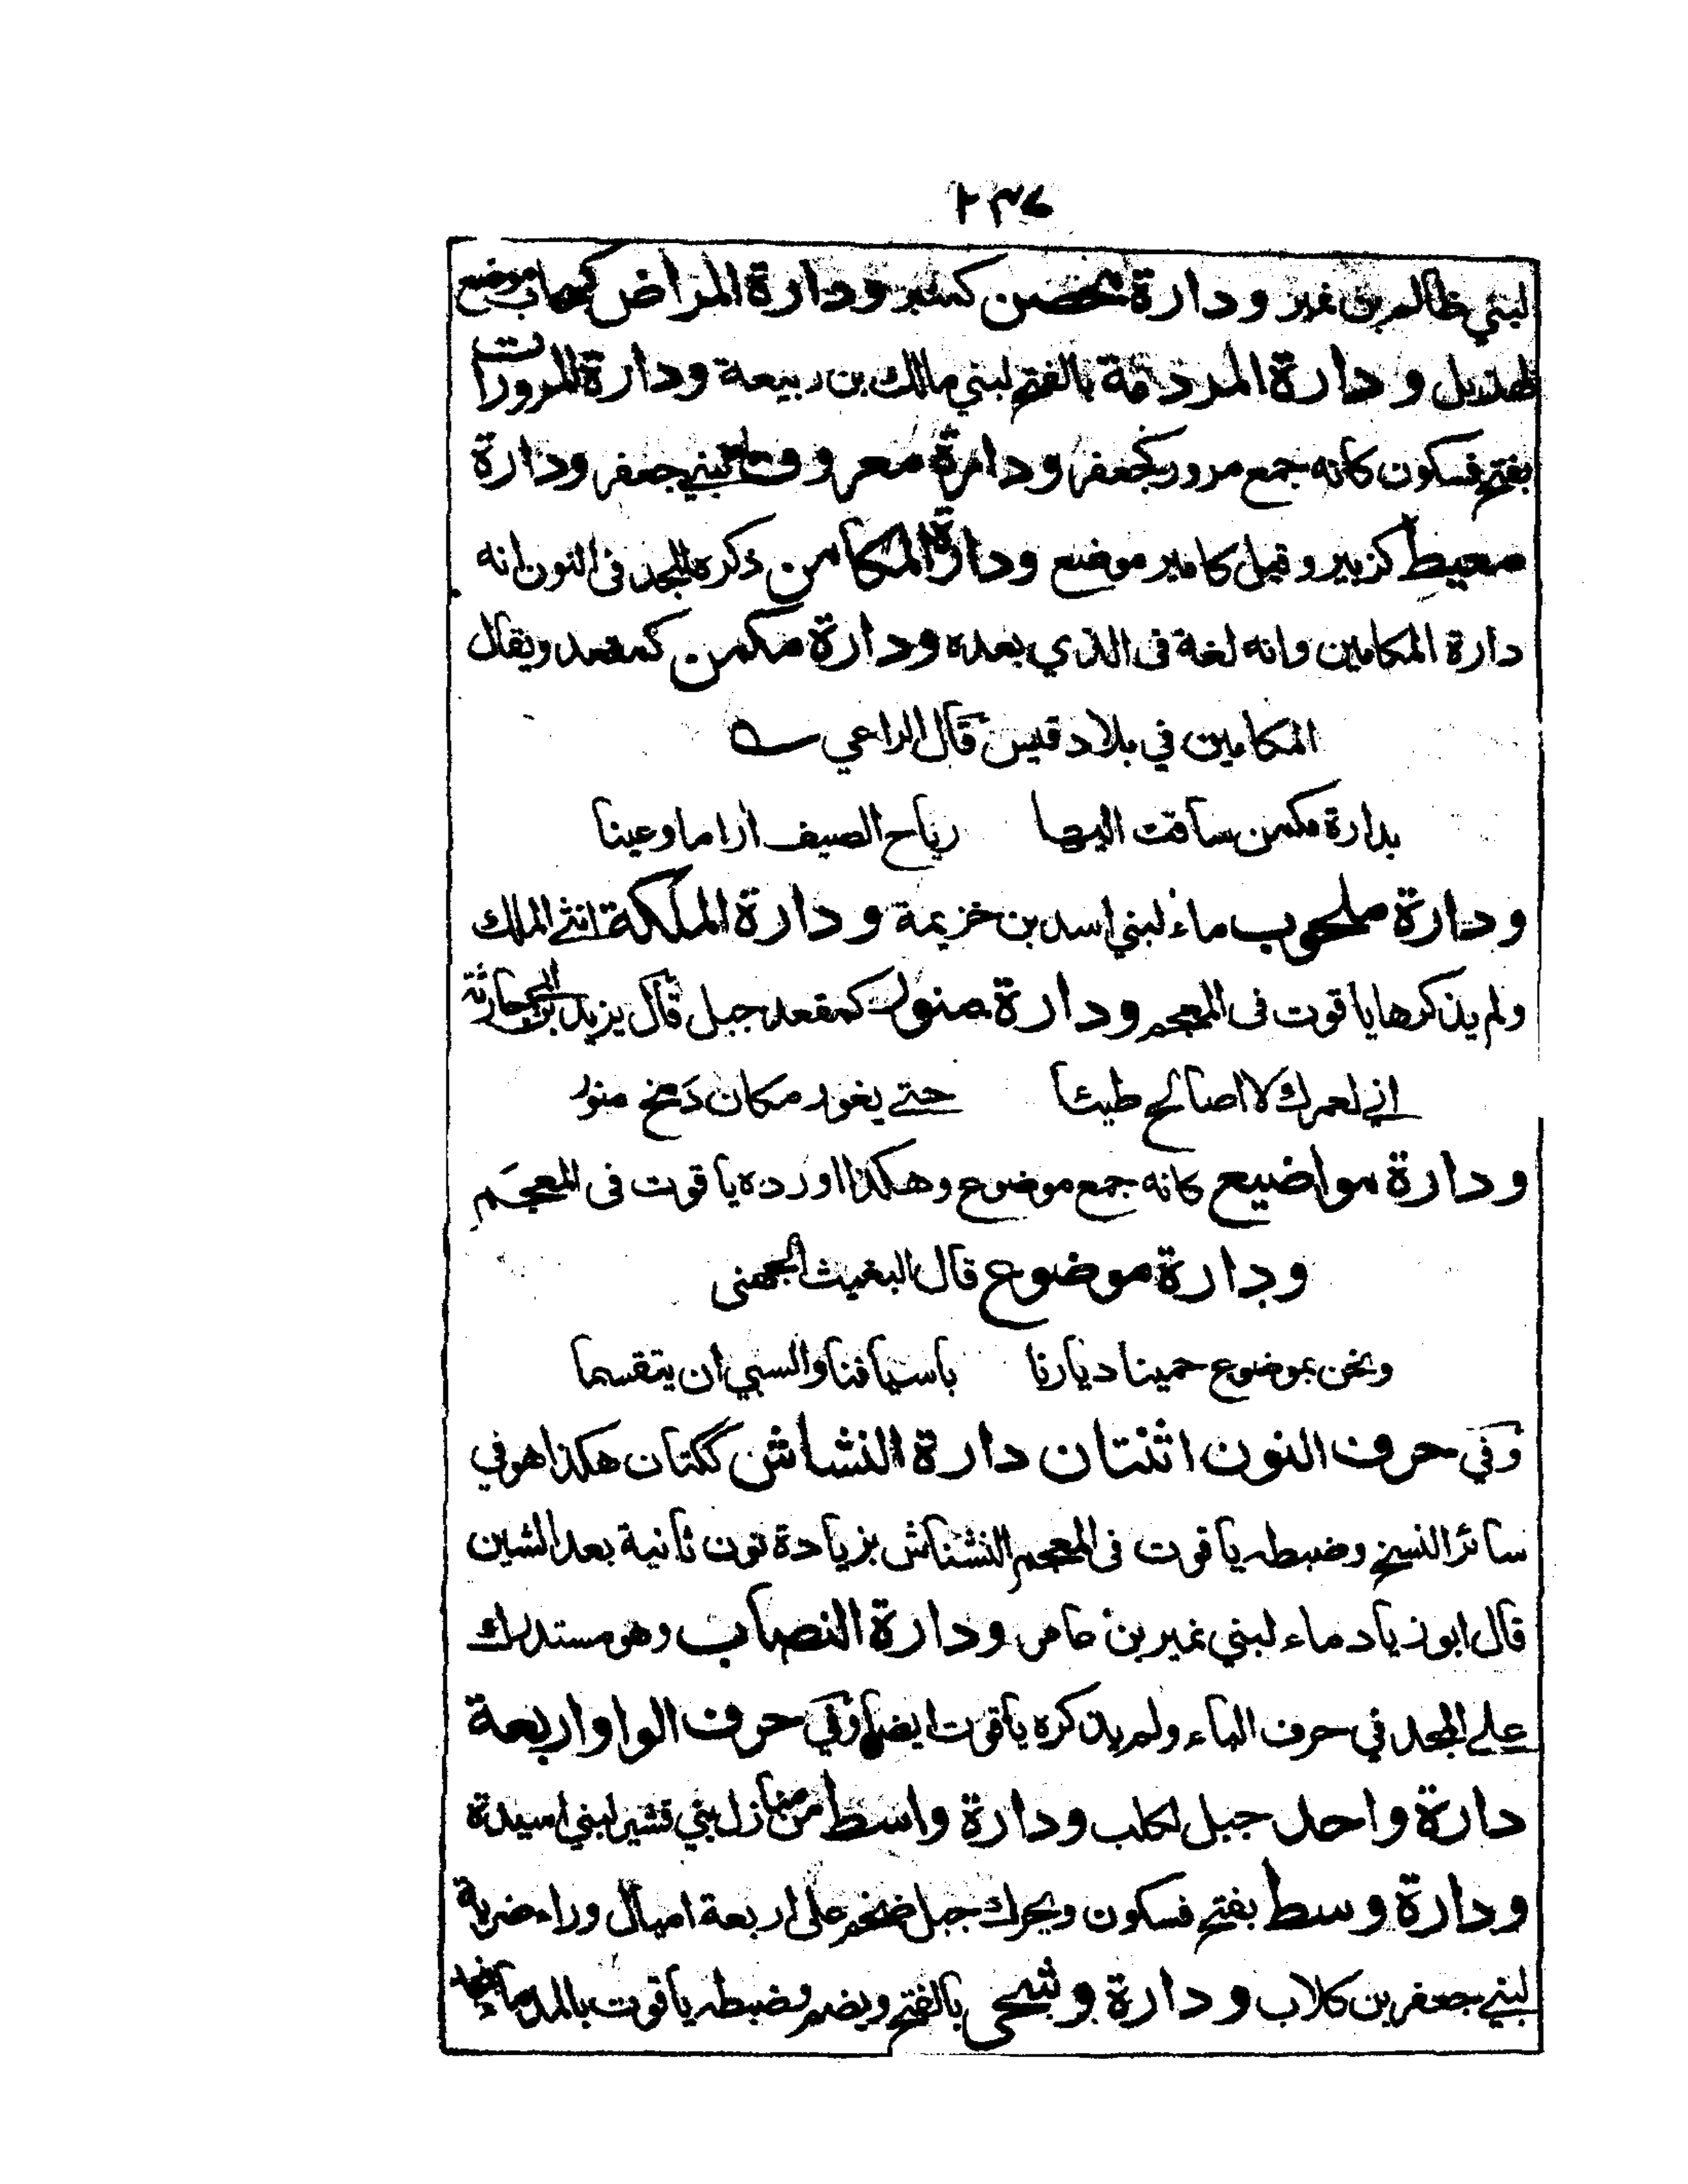 ٢٣٧
لبني ظالم بن نمير ودارة محصن كمنبر ودارة المراض كسحاب موضع
لهذيل ودارة المردمة بالفتح لبني مالك بن ربيعة ودارة المرورات
بفتح فسكون كانه جمع مرور كجعفر ودارة معروف لبني جعفر ودارة
معيط كزبير وقيل كامير موضع ودارة المكامن ذكره المجد في النون انه
دارة المكامين وانه لغة في الذي بعده ودارة مكمن كمقعد ويقال
المكامين في بلاد قيس قال الراعي
بدارة مكمن ساقت اليها رياح الصيف اراما وعينا
ودارة ملحوب ماء لبني اسد بن خزيمة ودارة الملكة انثى الملك
ولم يذكرها ياقوت في المعجم ودارة منور كمقعد جبل قال يزيد بن ابي حارثة
اني لعمرك لا اصالح طيئا حتى يغور مكان دمخ منور
ودارة مواضيع كانه جمع موضوع وهكذا اورده ياقوت في المعجم
ودارة موضوع قال البغيث الجهني
ونحن بموضوع حمينا ديارنا باسيافنا والسبي ان يتقسما
وفي حرف النون اثنتان دارة النشاش ككتان هكذا هو في
سائر النسخ وضبطه ياقوت في المعجم النشناش بزيادة نون ثانية بعد الشين
قال ابو زياد ماء لبني نمير بن عامر ودارة النصاب وهو مستدرك
على المجد في حرف الباء ولم يذكره ياقوت ايضا وفي حرف الواو اربعة
دارة واحد جبل لكلب ودارة واسط من منازل بني قشير لبني اسيدة
ودارة وسط بفتح فسكون ويحرك جبل ضخم على اربعة اميال وراء ضرية
لبني جعفر بن كلاب ودارة وشحى بالفتح ويضم وضبطه ياقوت بالمد ماء